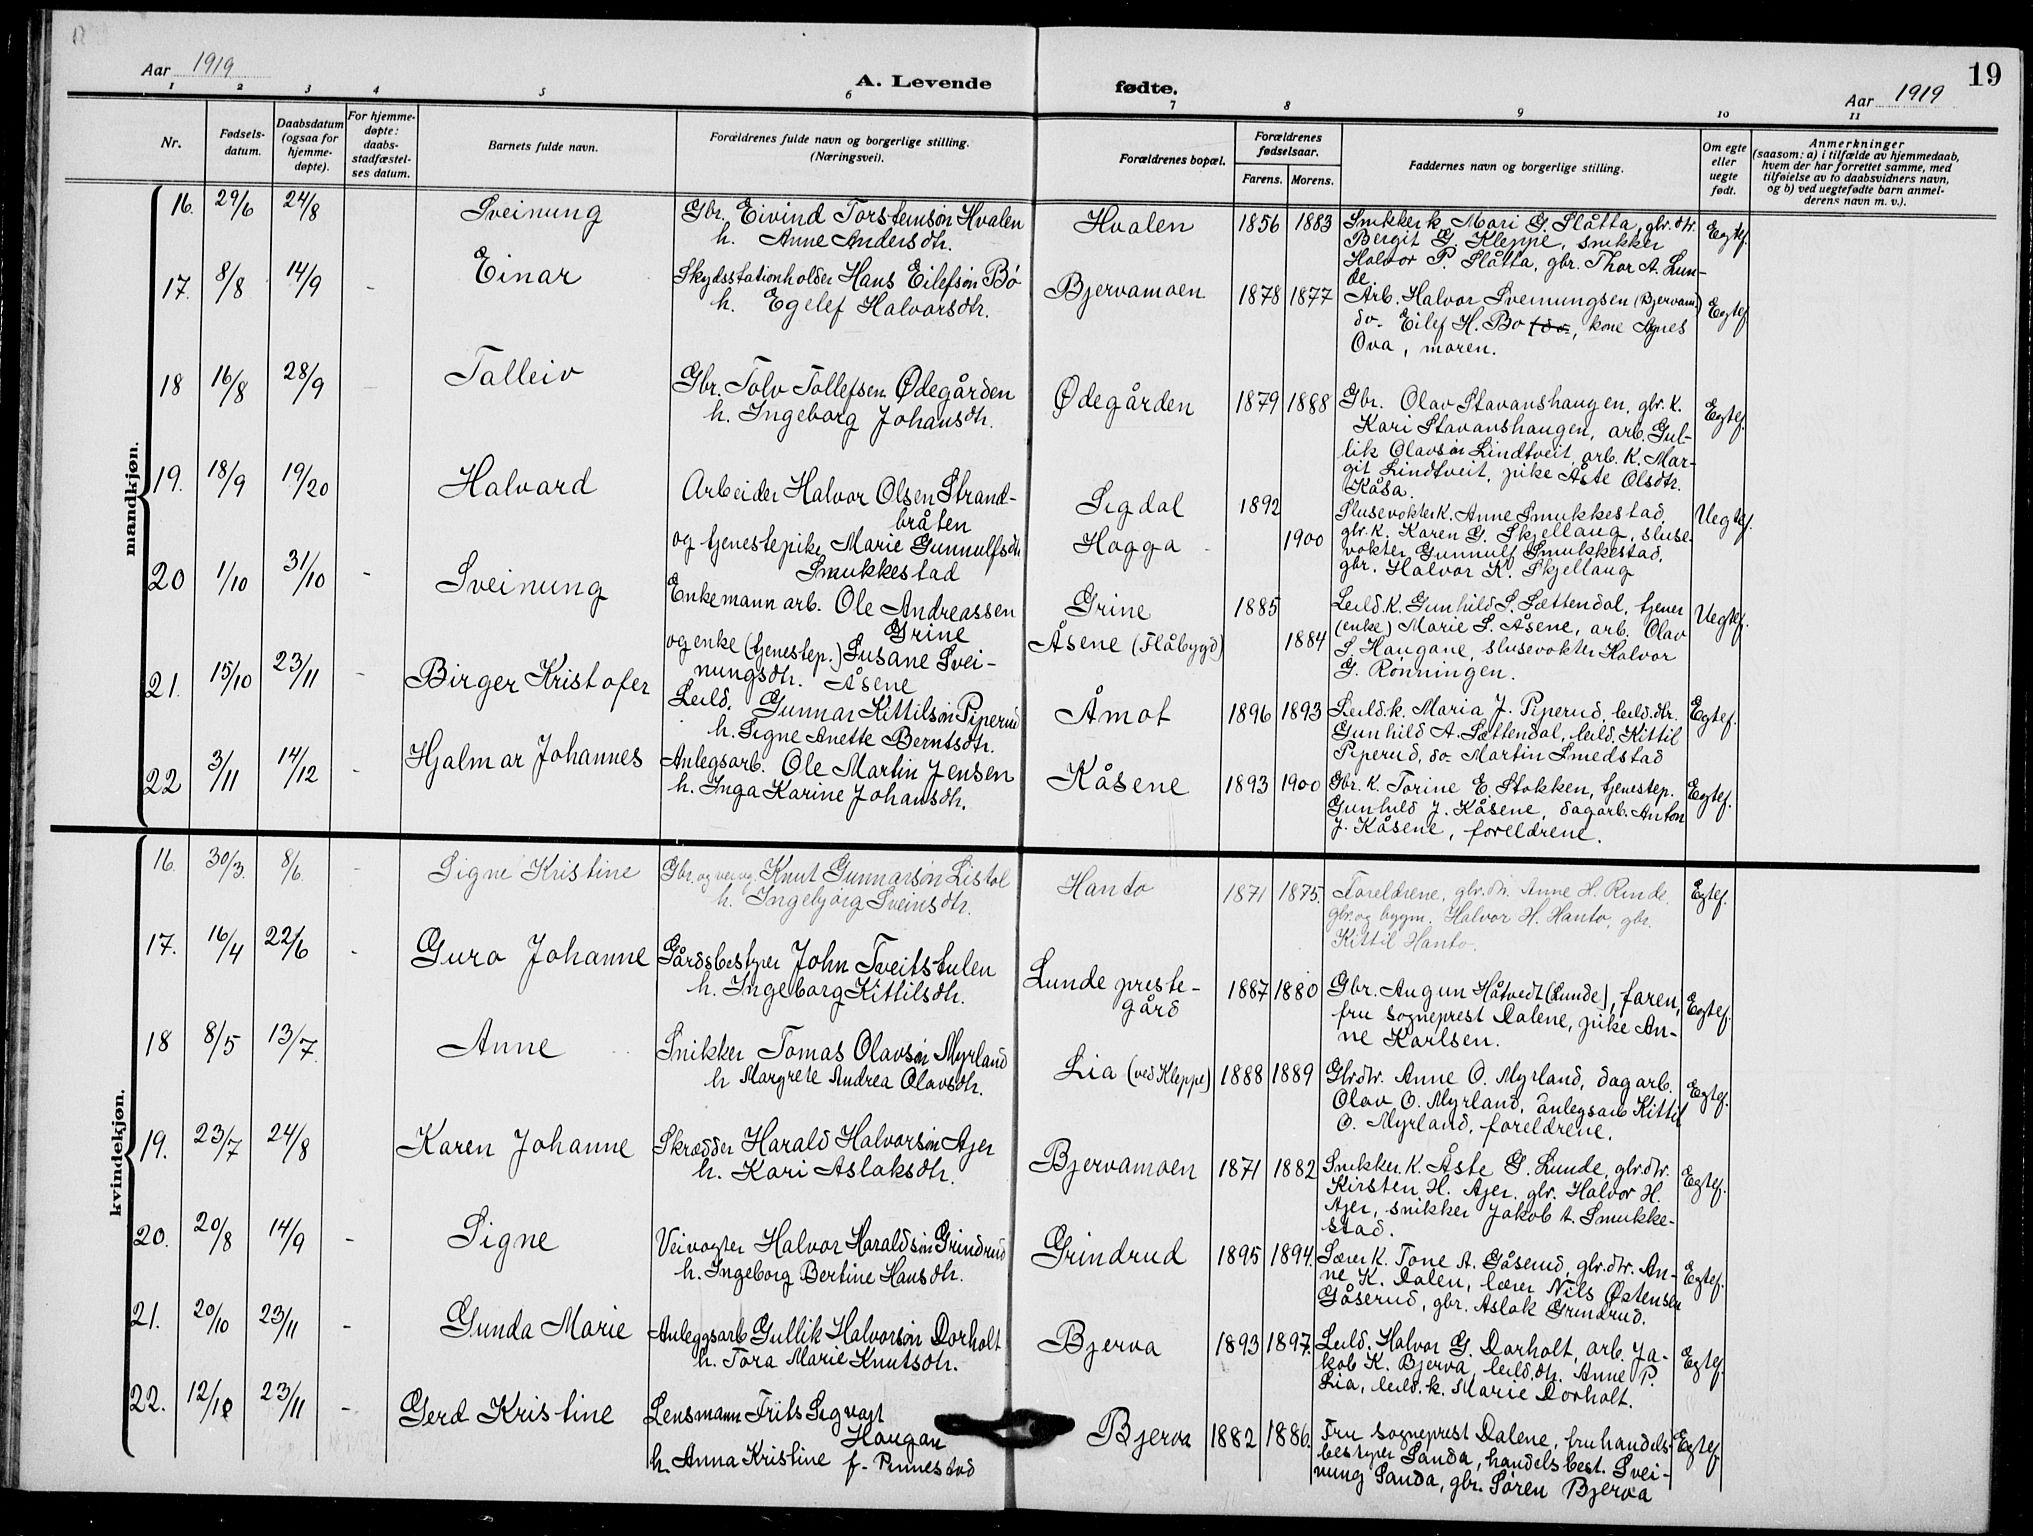 Aar 1919
A. Levende
fødte.
Aar 1919
19
1 2 3 4 5 6 7 8 9 10 11
Nr.
Fødsels-
datum.
Daabsdatum
(ogsaa for
hjemme-
døpte).
For hjemme-
døpte:
daabs-
stadfæstel-
ses datum.
Barnets fulde navn.
Forældrenes fulde navn og borgerlige stilling.
(Næringsvei).
Forældrenes bopæl.
Forældrenes
fødselsaar.
Farens. Morens.
Faddernes navn og borgerlige stilling.
Om egte
eller
uegte
født.
Anmerkninger
(saasom: a) i tilfælde av hjemmedaab,
hvem der har forrettet samme, med
tilføielse av to daabsvidners navn,
og b) ved uegtefødte barn anmel-
derens navn m. v.).
mandkjøn.
16. 29/6 24/8 Sveinung
Gbr. Eivind Torsteinsøn Hvalen
h. Anne Andersdtr.
Hvalen 1856 1883
Snikkerk. Mari G. Slåtta, gbr. dtr.
Bergit G. Kleppe, snikker
Halvor P. Slåtta, gbr. Thor A. Lun-
de
Egtef.
17. 8/8 14/9 - Einar
Skydsstationholder Hans Eilefsøn Bø
h. Egelef Halvorsdtr.
Bjervamoen 1878 1877
Arb. Halvor Sveinungsen (Bjervam)
do. Eilef H. Bø (do., kone Agnes
Ova, moren.
Egtef.
18 16/8 28/9 - Talleiv
Gbr. Tolv Tollefsen Ødegården
h. Ingeborg Johansdtr.
Ødegården 1879 1888
Gbr. Olav Stavanshaugen, gbr. k.
Kari Stavanshaugen, arb. Gul-
lik Olavsøn Lindtveit, arb. k. Mar-
git Lindtveit, pike Åste Olsdtr.
Kåsa.
Egtef.
19. 18/9 19/20 Halvard
Arbeider Halvor Olsen Strand-
bråten
og tjenestepike Marie Gunnulfsdtr
Smukkestad
Sigdal 1892
Hogga 1900
Slusevokterk. Anne Smukkestad,
gbr. k. Karen G. Skjellaug, sluse-
vokter Gunnulf Smukkestad,
gbr. Halvor K. Skjellaug
Uegtef.
20 1/10 31/10 - Sveinung
Enkemann arb. Ole Andreassen
Grine
og enke (tjenestep.) Susane Svei-
nungsdtr. Åsene
Grine 1885
Åsene (Flåbygd) 1884
Leild. k. Gunhild S. Sættendal, tjener
(enke) Marie S. Åsene, arb. Olav
S. Haugane, slusevokter Halvor
G. Rønningen.
Uegtef.
21. 15/10 23/11 - Birger Kristofer
Leild. Gunnar Kittilsøn Piperud
h. Signe Anette Berntsdtr.
Åmot 1896 1893
Leild. k. Maria J. Piperud, leild. dtr.
Gunhild A. Sættendal, leild. Kittil
Piperud, do. Martin Smedstad
Egtef.
22 3/11 14/12 - Hjalmar Johannes
Anlegsarb. Ole Martin Jensen
h. Inga Karine Johansdtr.
Kåsene 1893 1900
Gbr. k. Torine E. Stokken, tjenestep.
Gunhild J. Kåsene, dagarb. Anton
J. Kåsene, foreldrene.
Egtef.
kvindekjøn.
16. 30/3. 8/6. - Signe Kristine
Gbr. og Knut Gunnarsøn Listøl
h. Ingebjørg Sveinsdtr.
Hanto 1871 1875.
Foreldrene, gbr. dtr. Anne H. Rinde,
gbr. og bygm. Halvor H. Hanto, gbr.
Kittil Hanto.
Egtef.
17. 16/4 22/6 - Guro Johanne
Gårdsbestyrer John Tveitstulen
h. Ingeborg Kittilsdtr.
Lunde preste-
gård
1887 1880
Gbr. Augun Håtvedt (Lunde), faren,
fru sogneprest Dalene, pike An-
ne Karlsen.
Egtef.
18 8/5 13/7. Anne
Snikker Tomas Olavsøn Myrland
h Margrete Andrea Olavsdtr.
Lia (ved Kleppe) 1888 1889
Gbr.dtr. Anne O. Myrland, dagarb.
Olav O. Myrland, anlegsarb Kittil
O. Myrland, foreldrene.
Egtef.
19. 23/7 24/8 Karen Johanne
Skrædder Harald Halvorsøn Ajer
h. Kari Aslaksdtr.
Bjervamoen 1871 1882
Snikker k. Åste G. Lunde, gbr. dtr.
Kirsten H. Ajer. gbr. Halvor H.
Ajer, snikker Jakob A. Smukke-
stad.
Egtef.
20. 20/8 14/9 - Signe
Veivogter Halvor Haraldsøn Grindrud
h. Ingeborg Bertine Hansdtr.
Grindrud 1895 1894.
Lærer k. Tone A. Gåserud, gbr. dtr. An-
ne K. Dalen, lærer Nils Østensen
Gåserud, gbr. Aslak Grindrud.
Egtef.
21. 20/10 23/11 - Gunda Marie
Anleggsarb Gullik Halvorsøn Dorholt
h. Tora Marie Knutsdtr.
Bjerva 1893 1897.
Leild. Halvor G. Dorholt, arb. Ja-
kob K. Bjerva, leild. dtr. Anne P.
Lia, leild. k. Marie Dorholt.
Egtef.
22. 12/10 23/11 - Gerd Kristine
Lensmann Frits Sigvart
Haugan
h. Anna Kristine f. Pinnestad
Bjerva 1882 1886.
Fru sogneprest Dalene, fru handels-
bestyrer Sanda, handelsbest. Svei-
nung Sanda, gbr. Søren Bjerva
Egtef.